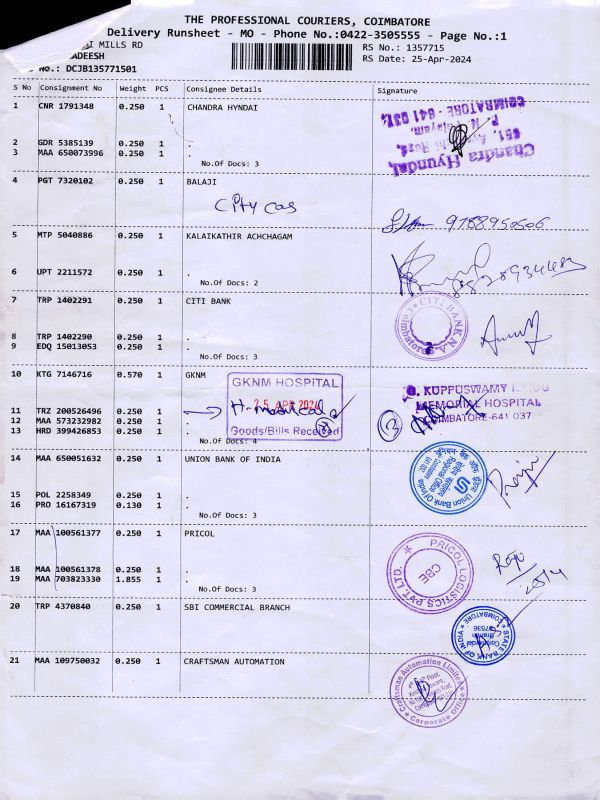 THE PROFESSIONAL COURIERS, COIMBATORE
Delivery Runsheet - MO - Phone No.:0422-3505555 - Page No.:1
MILLS RD
RS No.: 1357715
ADEESH
RS Date: 25-Apr-2024
No.: DCJB135771501
S No Consignment No Weight PCS Consignee Details Signature
1 CNR 1791348 0.250 1 CHANDRA HYNDAI
Chandra Hyundai,
COIMBATORE - 641 037.
2 GDR 5385139 0.250 1 .
3 MAA 650073996 0.250 1 .
No.Of Docs: 3
4 PGT 7320102 0.250 1 BALAJI
City Cas
9788950506
5 MTP 5040886 0.250 1 KALAIKATHIR ACHCHAGAM
6 UPT 2211572 0.250 1 .
No.Of Docs: 2
7 TRP 1402291 0.250 1 CITI BANK
CITI BANK N.A.
Coimbatore
8 TRP 1402290 0.250 1 .
9 EDQ 15013053 0.250 1 .
No.Of Docs: 3
10 KTG 7146716 0.570 1 GKNM
GKNM HOSPITAL
25 APR 2024
Goods/Bills Received
G. KUPPUSWAMY NAIDU
MEMORIAL HOSPITAL
COIMBATORE-641 037
11 TRZ 200526496 0.250 1 .
12 MAA 573232982 0.250 1 .
13 HRD 399426853 0.250 1 .
No.Of Docs: 4
14 MAA 650051632 0.250 1 UNION BANK OF INDIA
Union Bank Of India
Regional Office
15 POL 2258349 0.250 1 .
16 PRO 16167319 0.130 1 .
No.Of Docs: 3
17 MAA 100561377 0.250 1 PRICOL
PRICOL LOGISTICS PVT LTD.
CBE
18 MAA 100561378 0.250 1 .
19 MAA 703823330 1.855 1 .
No.Of Docs: 3
20 TRP 4370840 0.250 1 SBI COMMERCIAL BRANCH
STATE BANK OF INDIA
Commercial
Branch
COIMBATORE
21 MAA 109750032 0.250 1 CRAFTSMAN AUTOMATION
Craftsman Automation Limited
Corporate Office